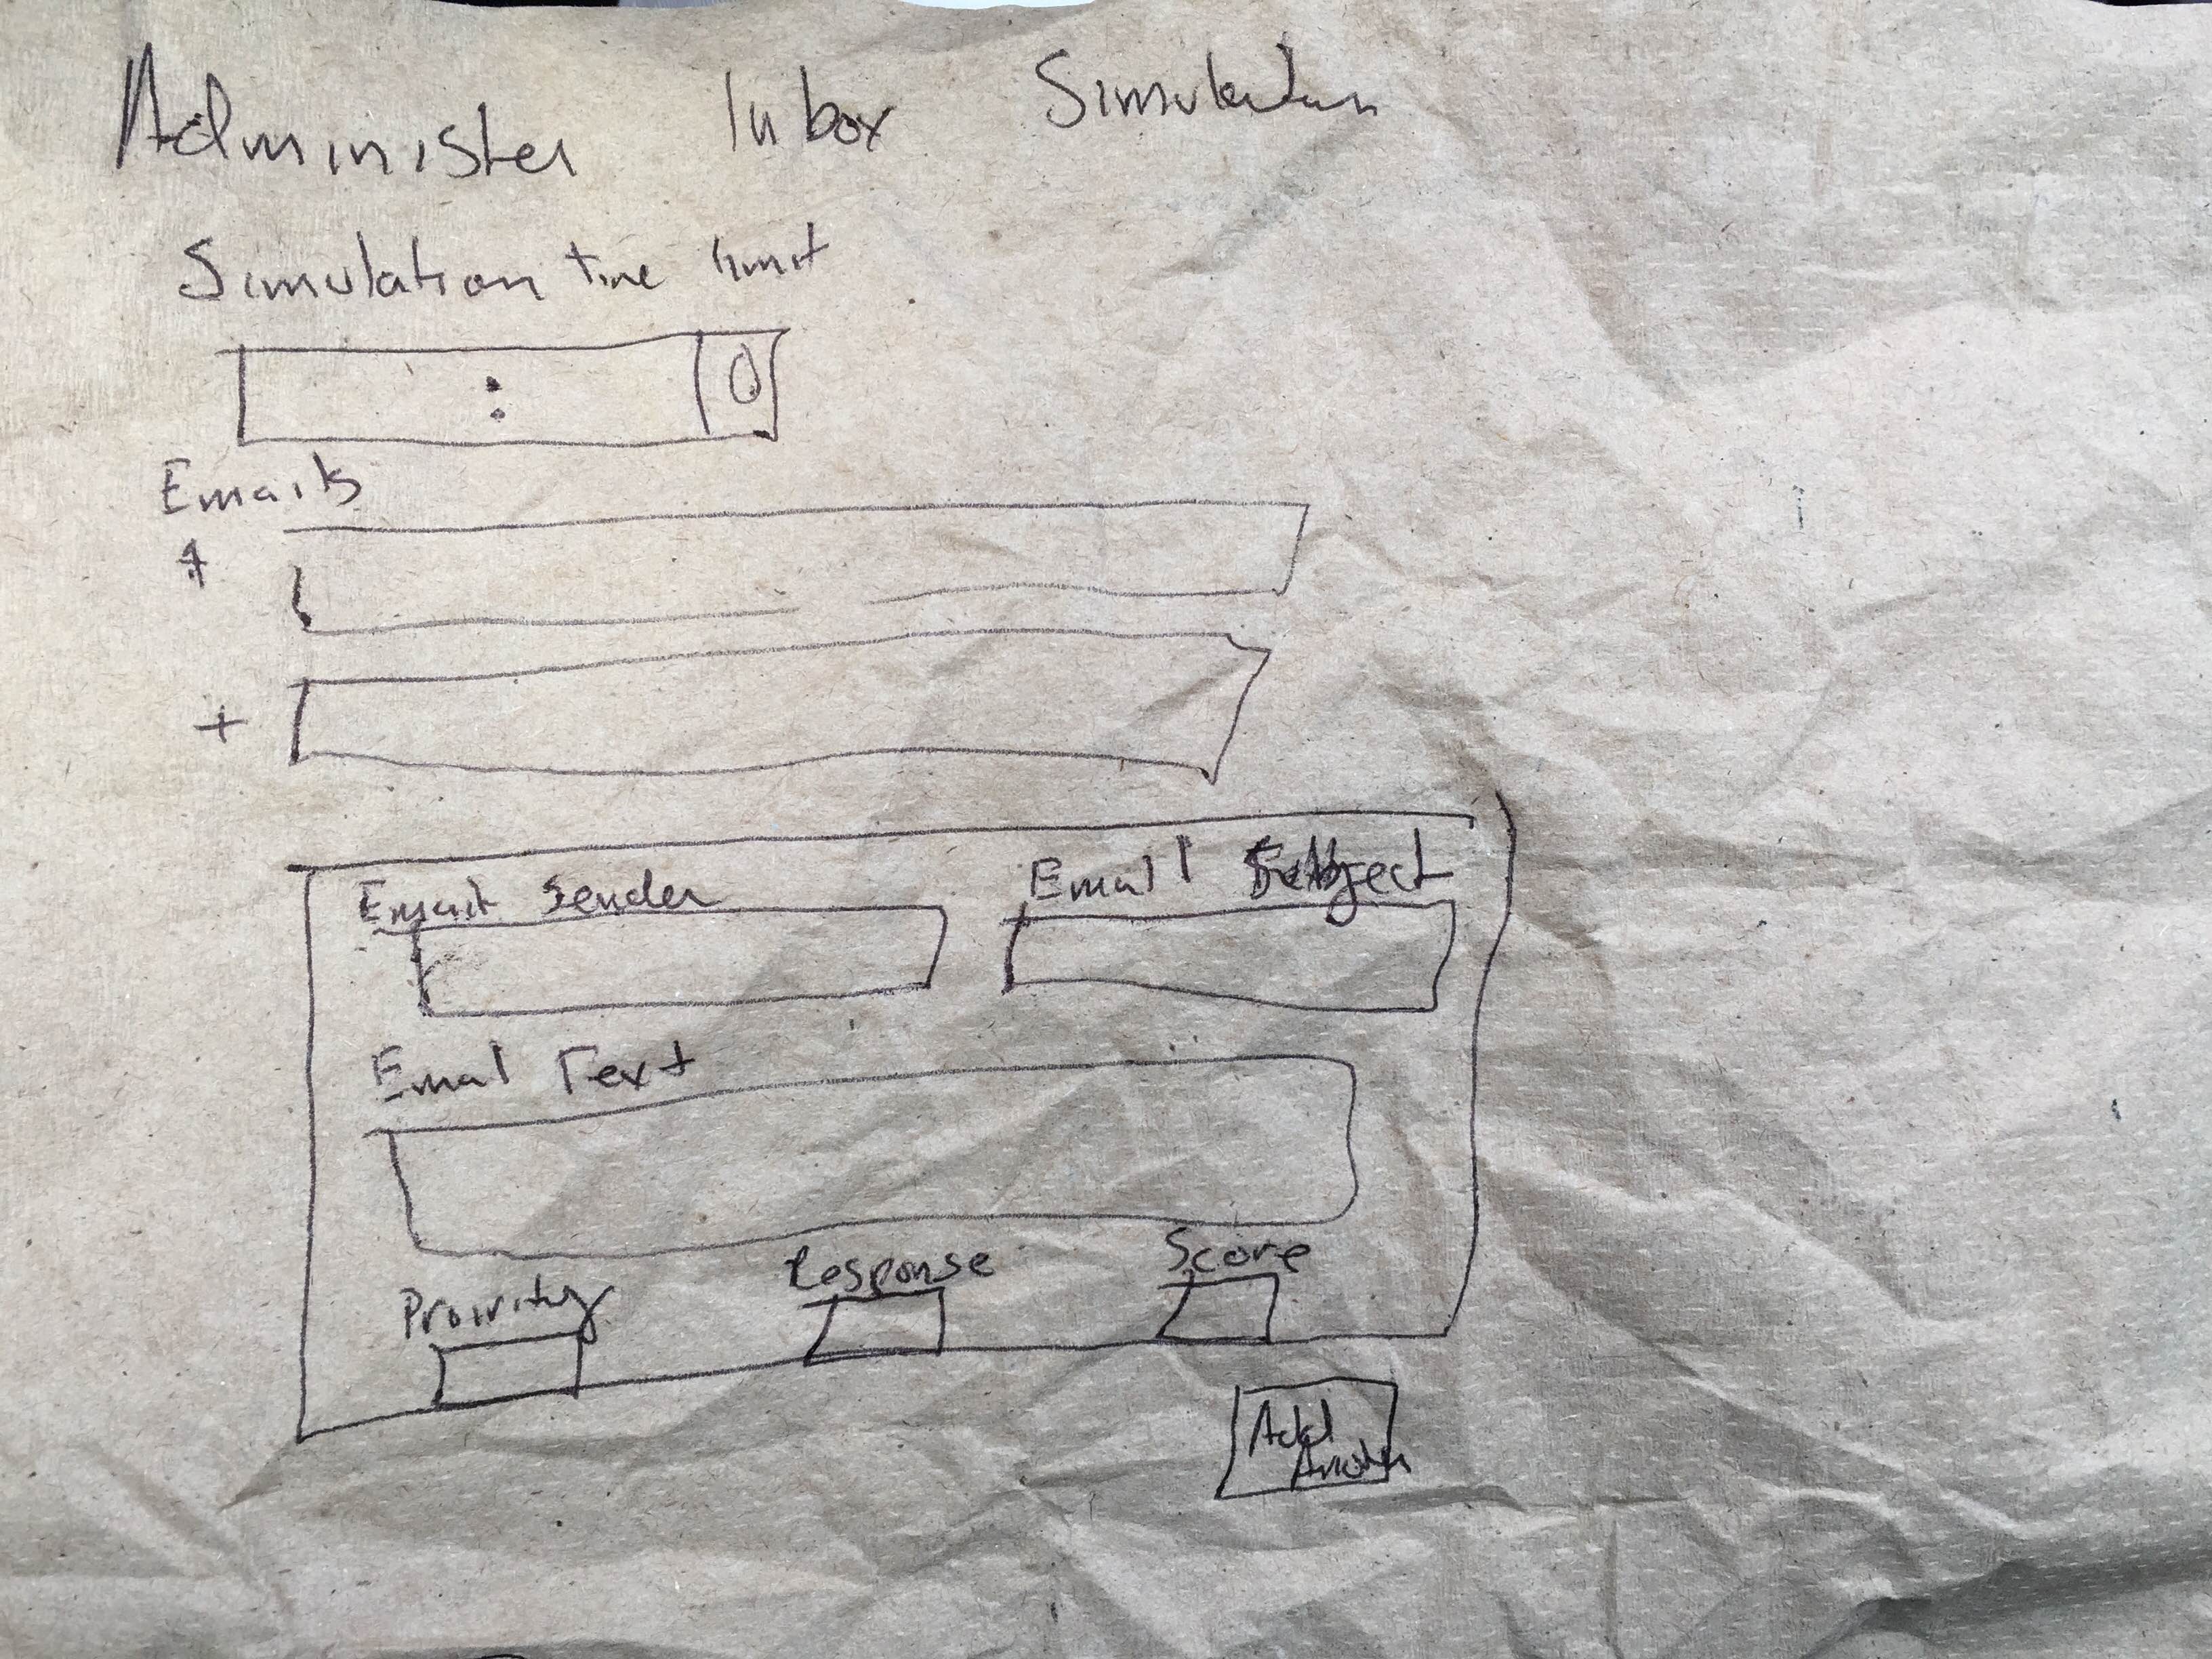 Administer Inbox Simulation
Simulation time limit
:
0
Emails
+
+
Email Sender
Email Subject
Email Text
Proirity
Response
Score
Add
Another